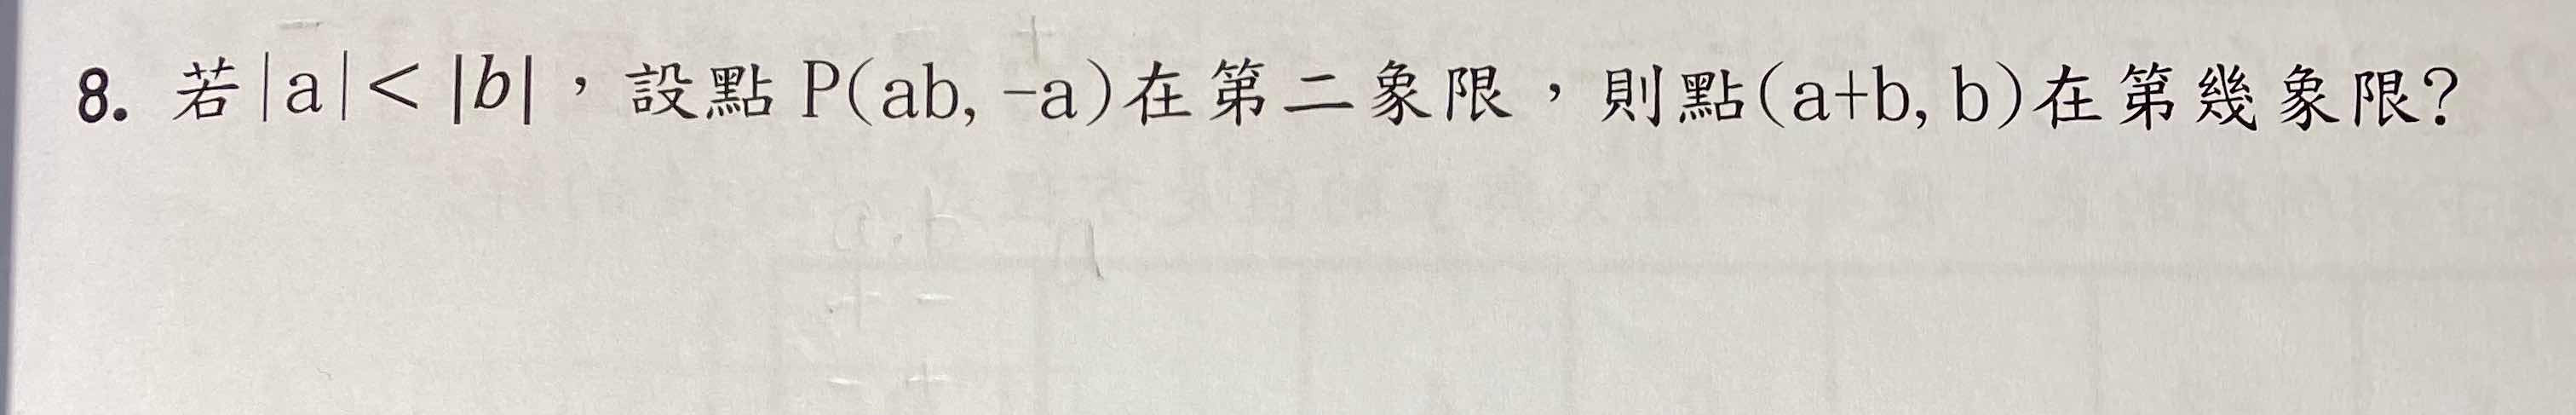 8. 若|a|< |b|，設點 P(ab, -a)在第二象限，則點(a+b, b)在第幾象限?